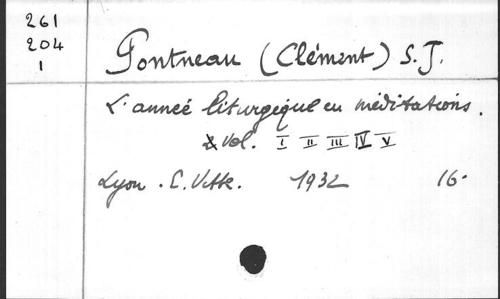 261
204
1
Pontneau (Clément) S.J.
L'année liturgique en méditations.
vol. I II III IV V
Lyon. E. Vitte. 1932 16.